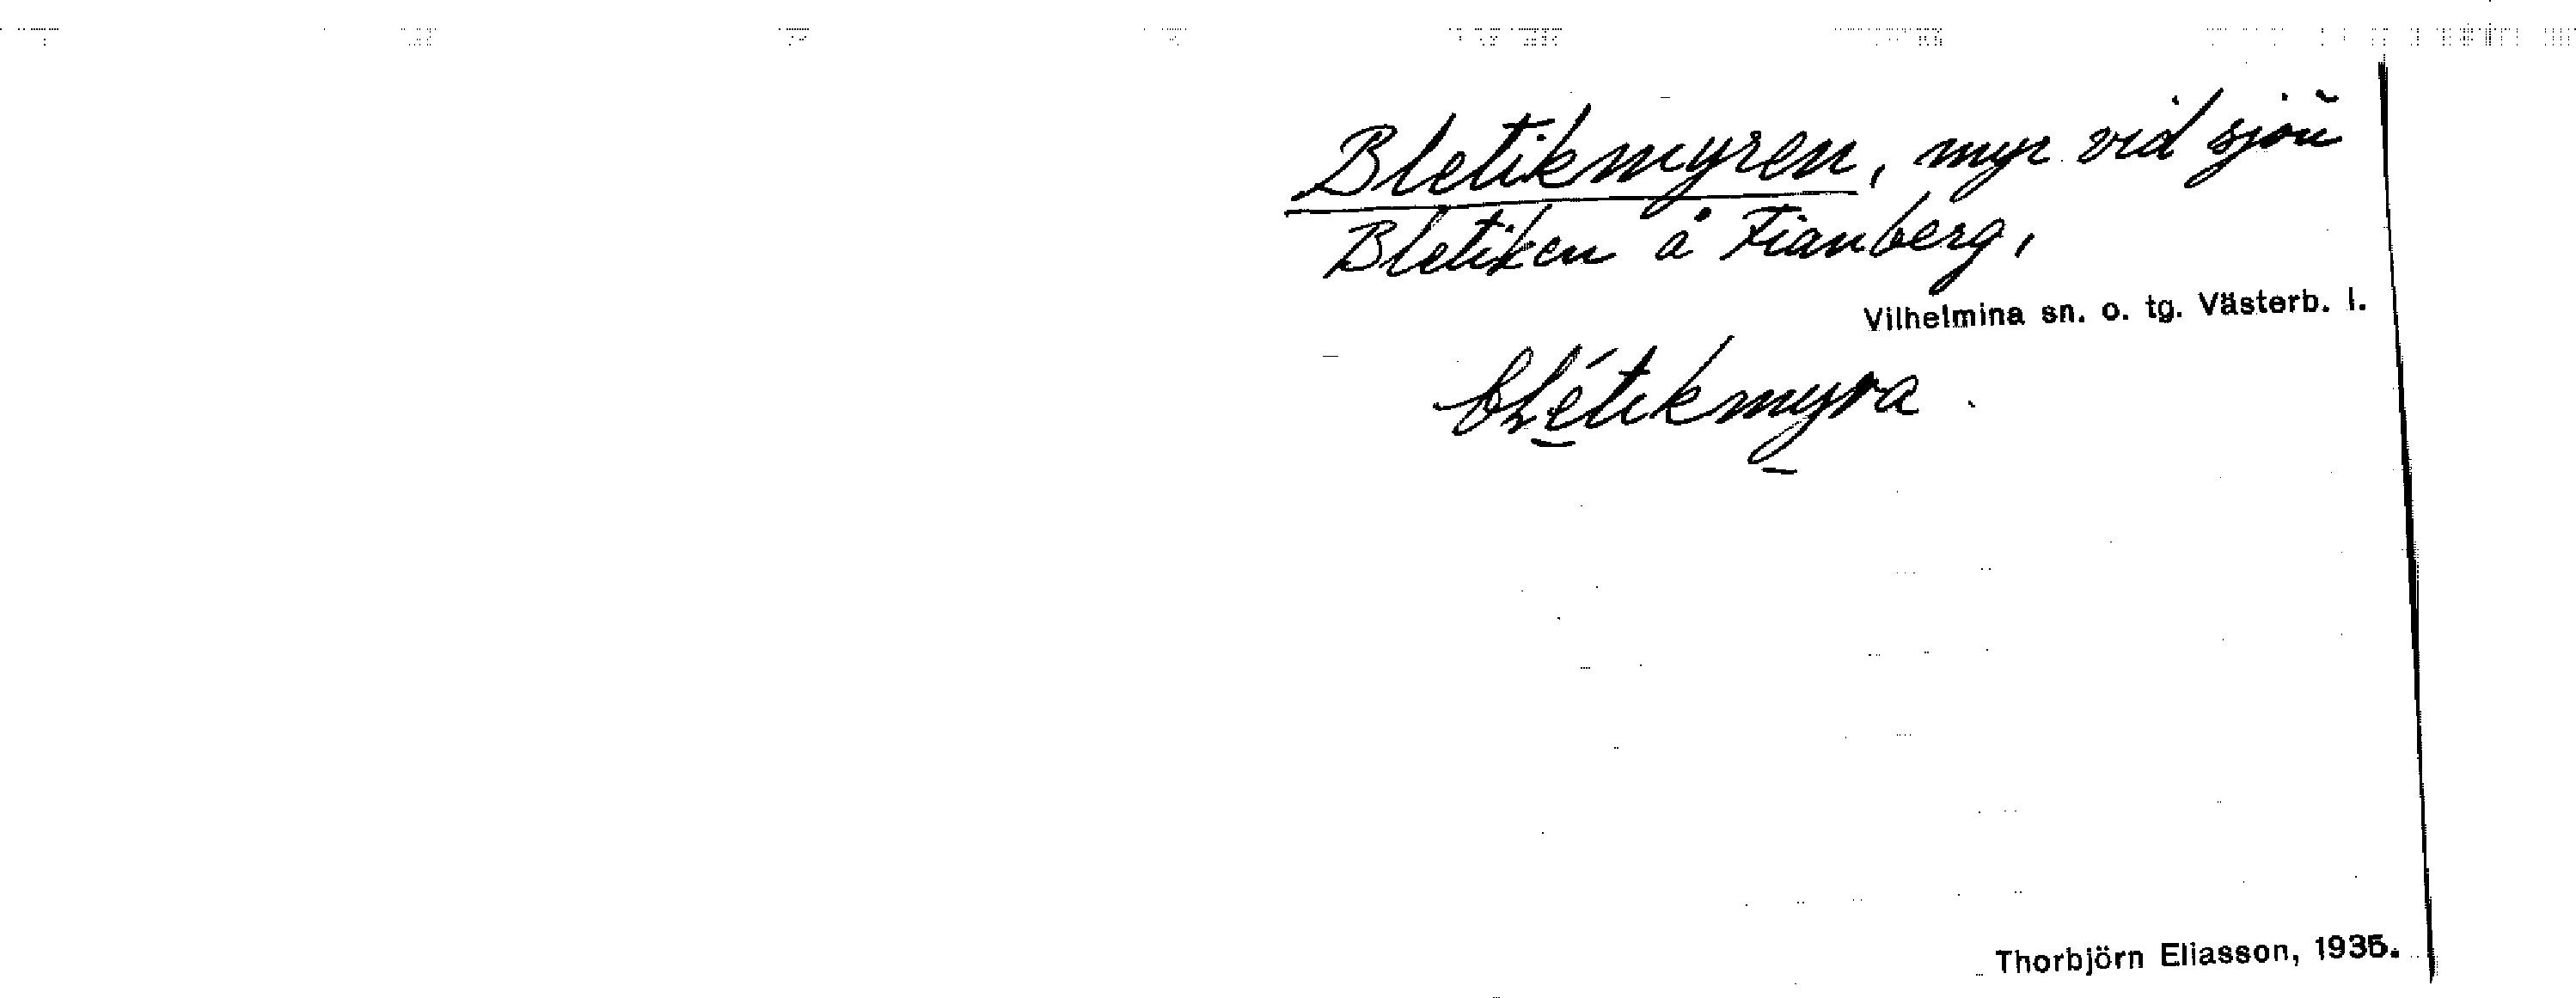 Bletikmyren, myr vid sjön
Bletiken å Fianberg,
Vilhelmina sn. o. tg. Västerb. l.
bLétikmyra
Thorbjörn Eliasson, 1935.